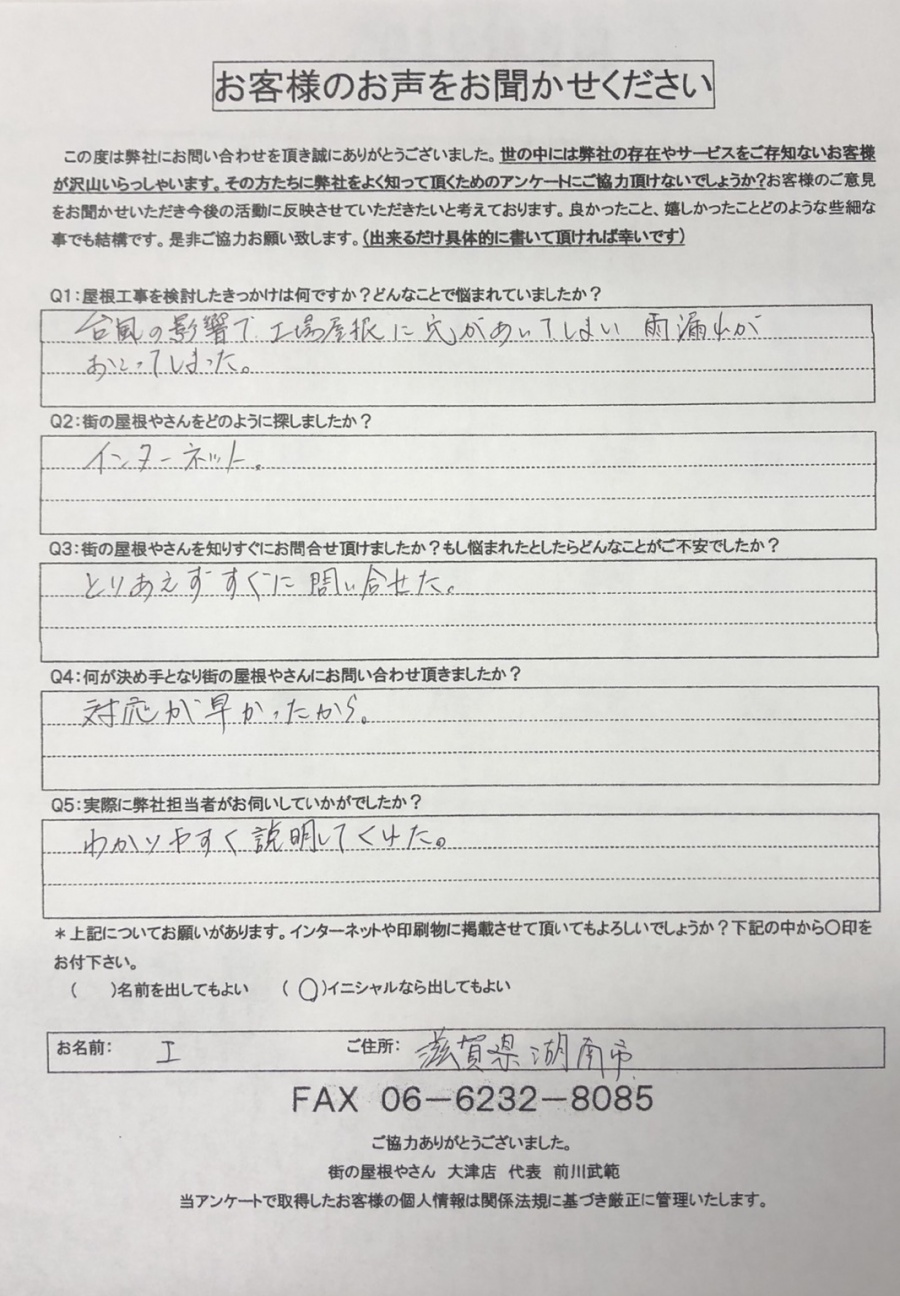 お客様のお声をお聞かせください
この度は弊社にお問い合わせを頂き誠にありがとうございました。世の中には弊社の存在やサービスをご存知ないお客様
が沢山いらっしゃいます。その方たちに弊社をよく知って頂くためのアンケートにご協力頂けないでしょうか?お客様のご意見
をお聞かせいただき今後の活動に反映させていただきたいと考えております。良かったこと、嬉しかったことどのような些細な
事でも結構です。是非ご協力お願い致します。(出来るだけ具体的に書いて頂ければ幸いです)
Q1:屋根工事を検討したきっかけは何ですか?どんなことで悩まれていましたか?
台風の影響で、工場屋根に穴があいてしまい 雨漏れが
おこってしまった。
Q2:街の屋根やさんをどのように探しましたか?
インターネット。
Q3:街の屋根やさんを知りすぐにお問合せ頂けましたか?もし悩まれたとしたらどんなことがご不安でしたか?
とりあえずすぐに問い合せた。
Q4:何が決め手となり街の屋根やさんにお問い合わせ頂きましたか?
対応が早かったから。
Q5:実際に弊社担当者がお伺いしていかがでしたか?
わかりやすく説明してくれた。
*上記についてお願いがあります。インターネットや印刷物に掲載させて頂いてもよろしいでしょうか?下記の中から〇印を
お付下さい。
( )名前を出してもよい (〇)イニシャルなら出してもよい
お名前: I ご住所: 滋賀県湖南市
FAX 06-6232-8085
ご協力ありがとうございました。
街の屋根やさん 大津店 代表 前川武範
当アンケートで取得したお客様の個人情報は関係法規に基づき厳正に管理いたします。